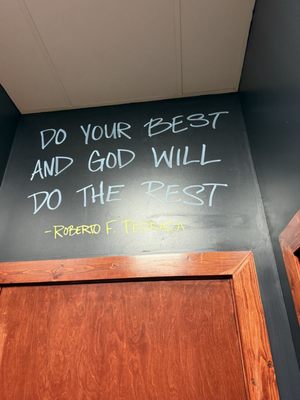 DO YOUR BEST
AND GOD WILL
DO THE REST
- ROBERTO F.